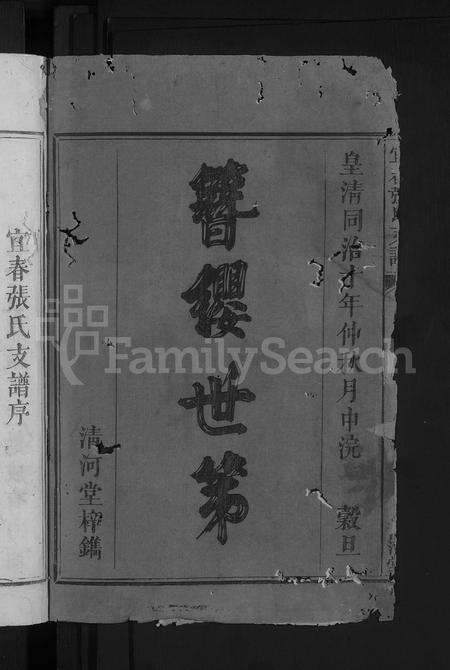 皇清同治十年仲秋月中浣 穀旦
簪纓世第
清河堂梓鐫
宜春張氏支譜序
宜春張氏支譜
FamilySearch